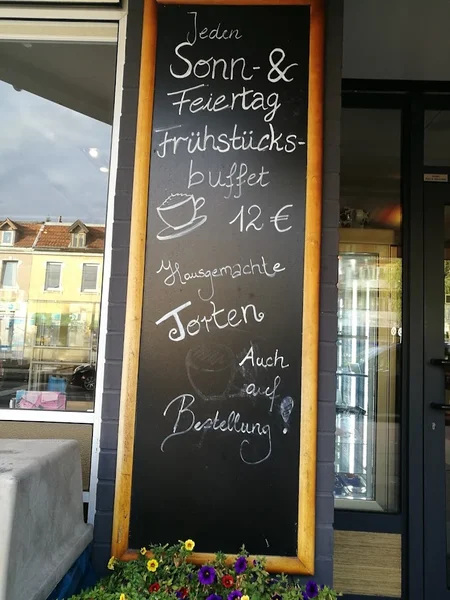 Jeden
Sonn- &
Feiertag
Frühstücks-
buffet
12 €
Hausgemachte
Torten
Auch
auf
Bestellung!